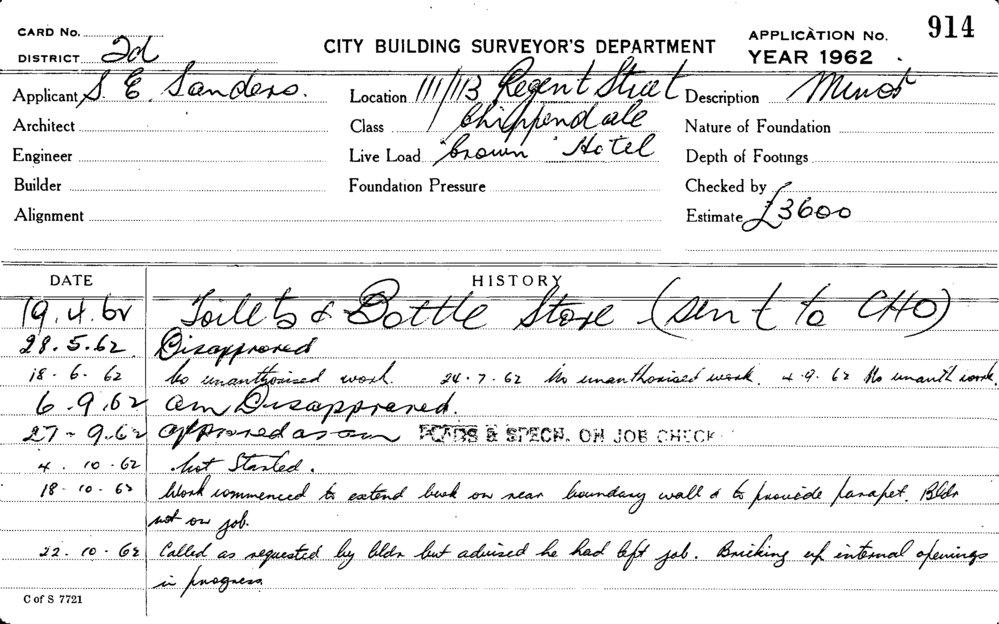 CARD No.
DISTRICT 2d
CITY BUILDING SURVEYOR'S DEPARTMENT
APPLICATION No. 914
YEAR 1962
Applicant S. E. Sanders. Location 111/113 Regent Street Description Minor
Architect Class Chippendale Nature of Foundation
Engineer Live Load "Crown" Hotel Depth of Footings
Builder Foundation Pressure Checked by
Alignment Estimate £3600
DATE HISTORY
19.4.62 Toilets & Bottle Store (sent to CHO)
28.5.62 Disapproved
18-6-62 No unanthorised work. 24.7.62 No unanthorised work. 4.9.62 No unauth work.
6.9.62 am Disapproved.
27-9.62 approved as am & SPECN. ON JOB CHECK
4.10.62 Not Started.
18-10-62 Work commenced to extend bwk on rear boundary wall & to provide parapet. Bldr
not on job.
22.10.62 Called as requested by bldr but advised he had left job. Bricking up internal openings
in progress
C of S 7721